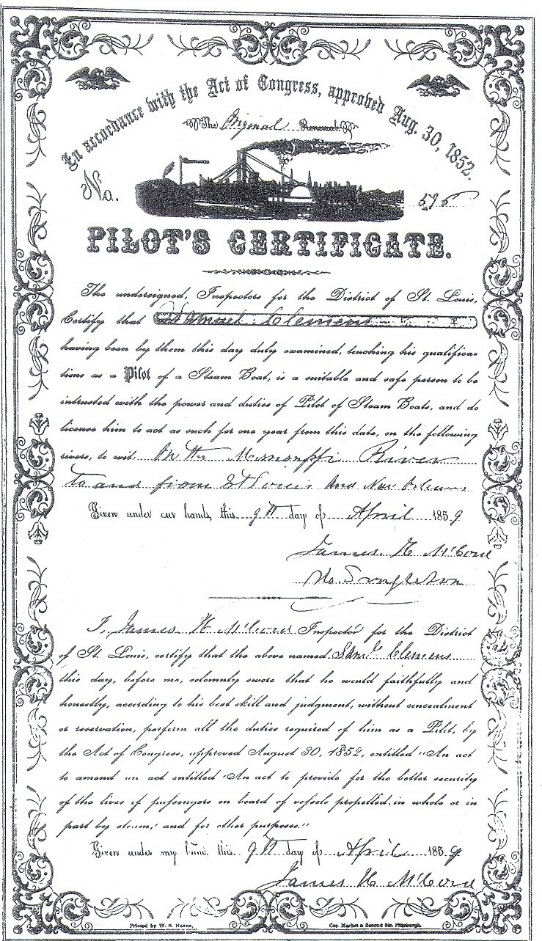 In accordance with the Act of Congress, approved Aug. 30, 1852.
The Original Renewal
No. 595
PILOT'S CERTIFICATE.
The undersigned, Inspectors for the District of St. Louis,
Certify that Samuel Clemens
having been by them this day duly examined, touching his qualifica-
tions as a Pilot of a Steam Boat, is a suitable and safe person to be
intrusted with the power and duties of Pilot of Steam Boats, and do
license him to act as such for one year from this date, on the following
rivers, to wit: On the Mississippi River
to and from St Louis and New Orleans
Given under our hands, this 9th day of April 1859
James H McCord
Singleton
I, James H McCord Inspector for the District
of St. Louis, certify that the above named Saml Clemens
this day, before me, solemnly swore that he would faithfully and
honestly, according to his best skill and judgment, without concealment
or reservation, perform all the duties required of him as a Pilot, by
the Act of Congress, approved August 30, 1852, entitled "An act
to amend an act entitled "An act to provide for the better security
of the lives of passengers on board of vessels propelled, in whole or in
part by steam," and for other purposes."
Given under my hand, this 9th day of April 1859
James H McCord
Printed by W. S. Haven, Cor. Market & Second Sts. Pittsburgh.